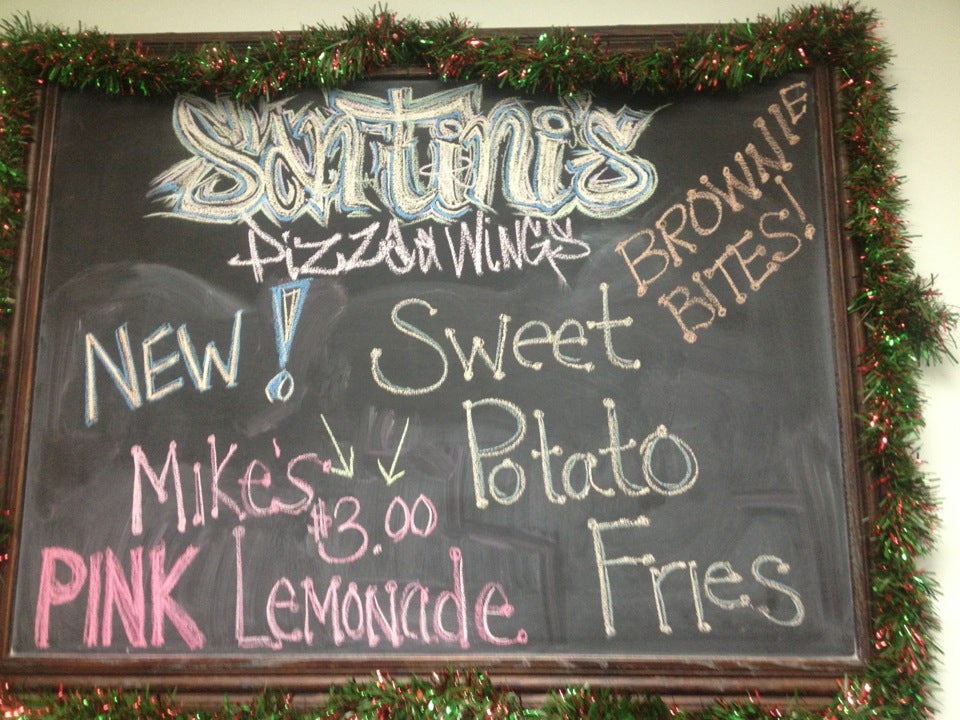 Santini's
Pizza & Wings
BROWNIE
BITES!
NEW!
Sweet
Potato
Fries
Mike's
$3.00
PINK Lemonade